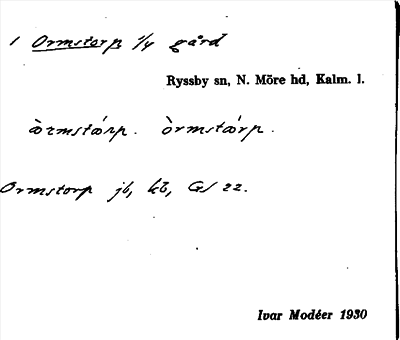 1 Ormstorp 1/4 gård
Ryssby sn, N. Möre hd, Kalm. l.
òrmstárp. òrmstárp.
Ormstorp jb, kb, GS 22.
Ivar Modéer 1930